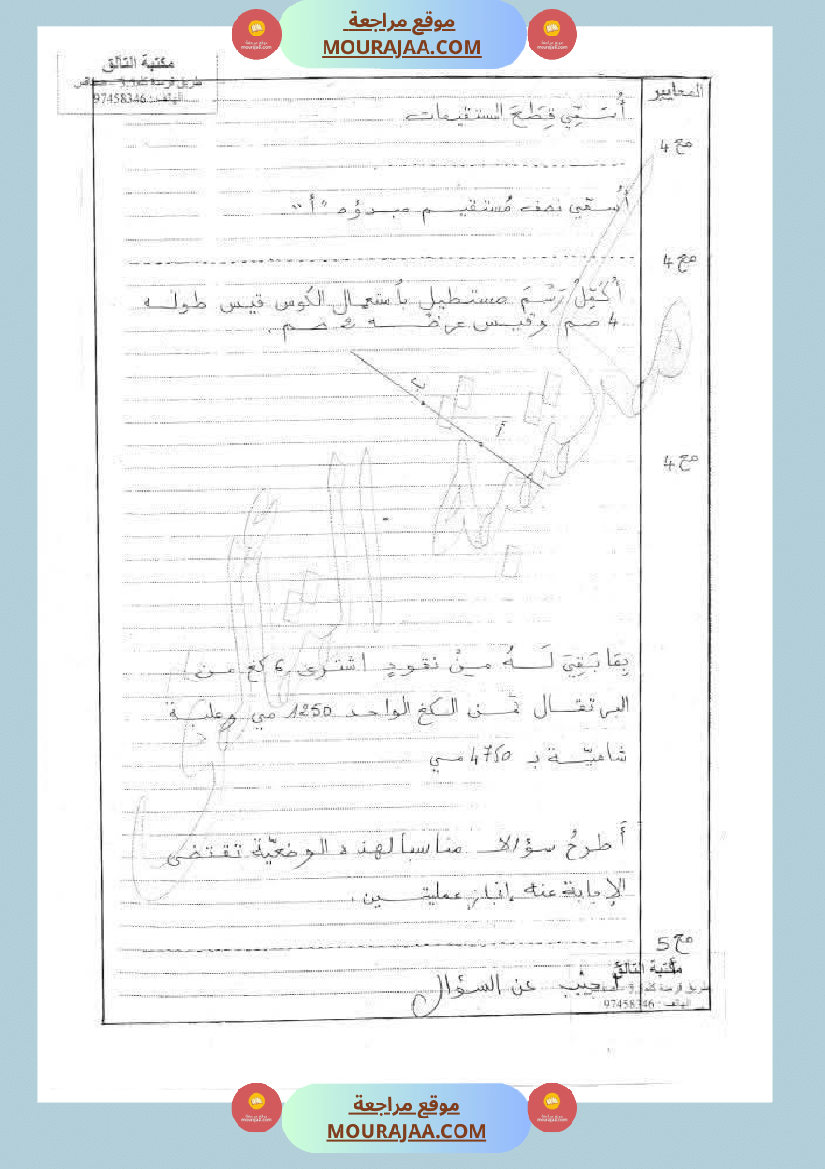 موقع مراجعة
MOURAJAA.COM
مكتبة التالق
97458346
المعايير
أُسَمِّي قِطَعَ المستقيمات
مع 4
أُسَمّي نصف مُستقيم مبدؤه "أ"
مع 4
أُكمِّلُ رَسْمَ مستطيل باستعمال الكوس قيس طوله
4 صم وقيس عرضه 2 صم.
ب
أ
مع 4
بِمَا بَقِيَ لَهُ مِنْ نقودٍ اشترى 6 كغ من
البرتقال ثمن الكغ الواحد 1250 مي وعلبة
شامية بـ 4750 مي
أَطرحُ سؤالا مناسبا لهذه الوضعيّة تقتضي
الإجابة عنه إنجاز عمليتين.
مع 5
مكتبة التالق
97458346
أُجيبُ عن السؤال
موقع مراجعة
MOURAJAA.COM